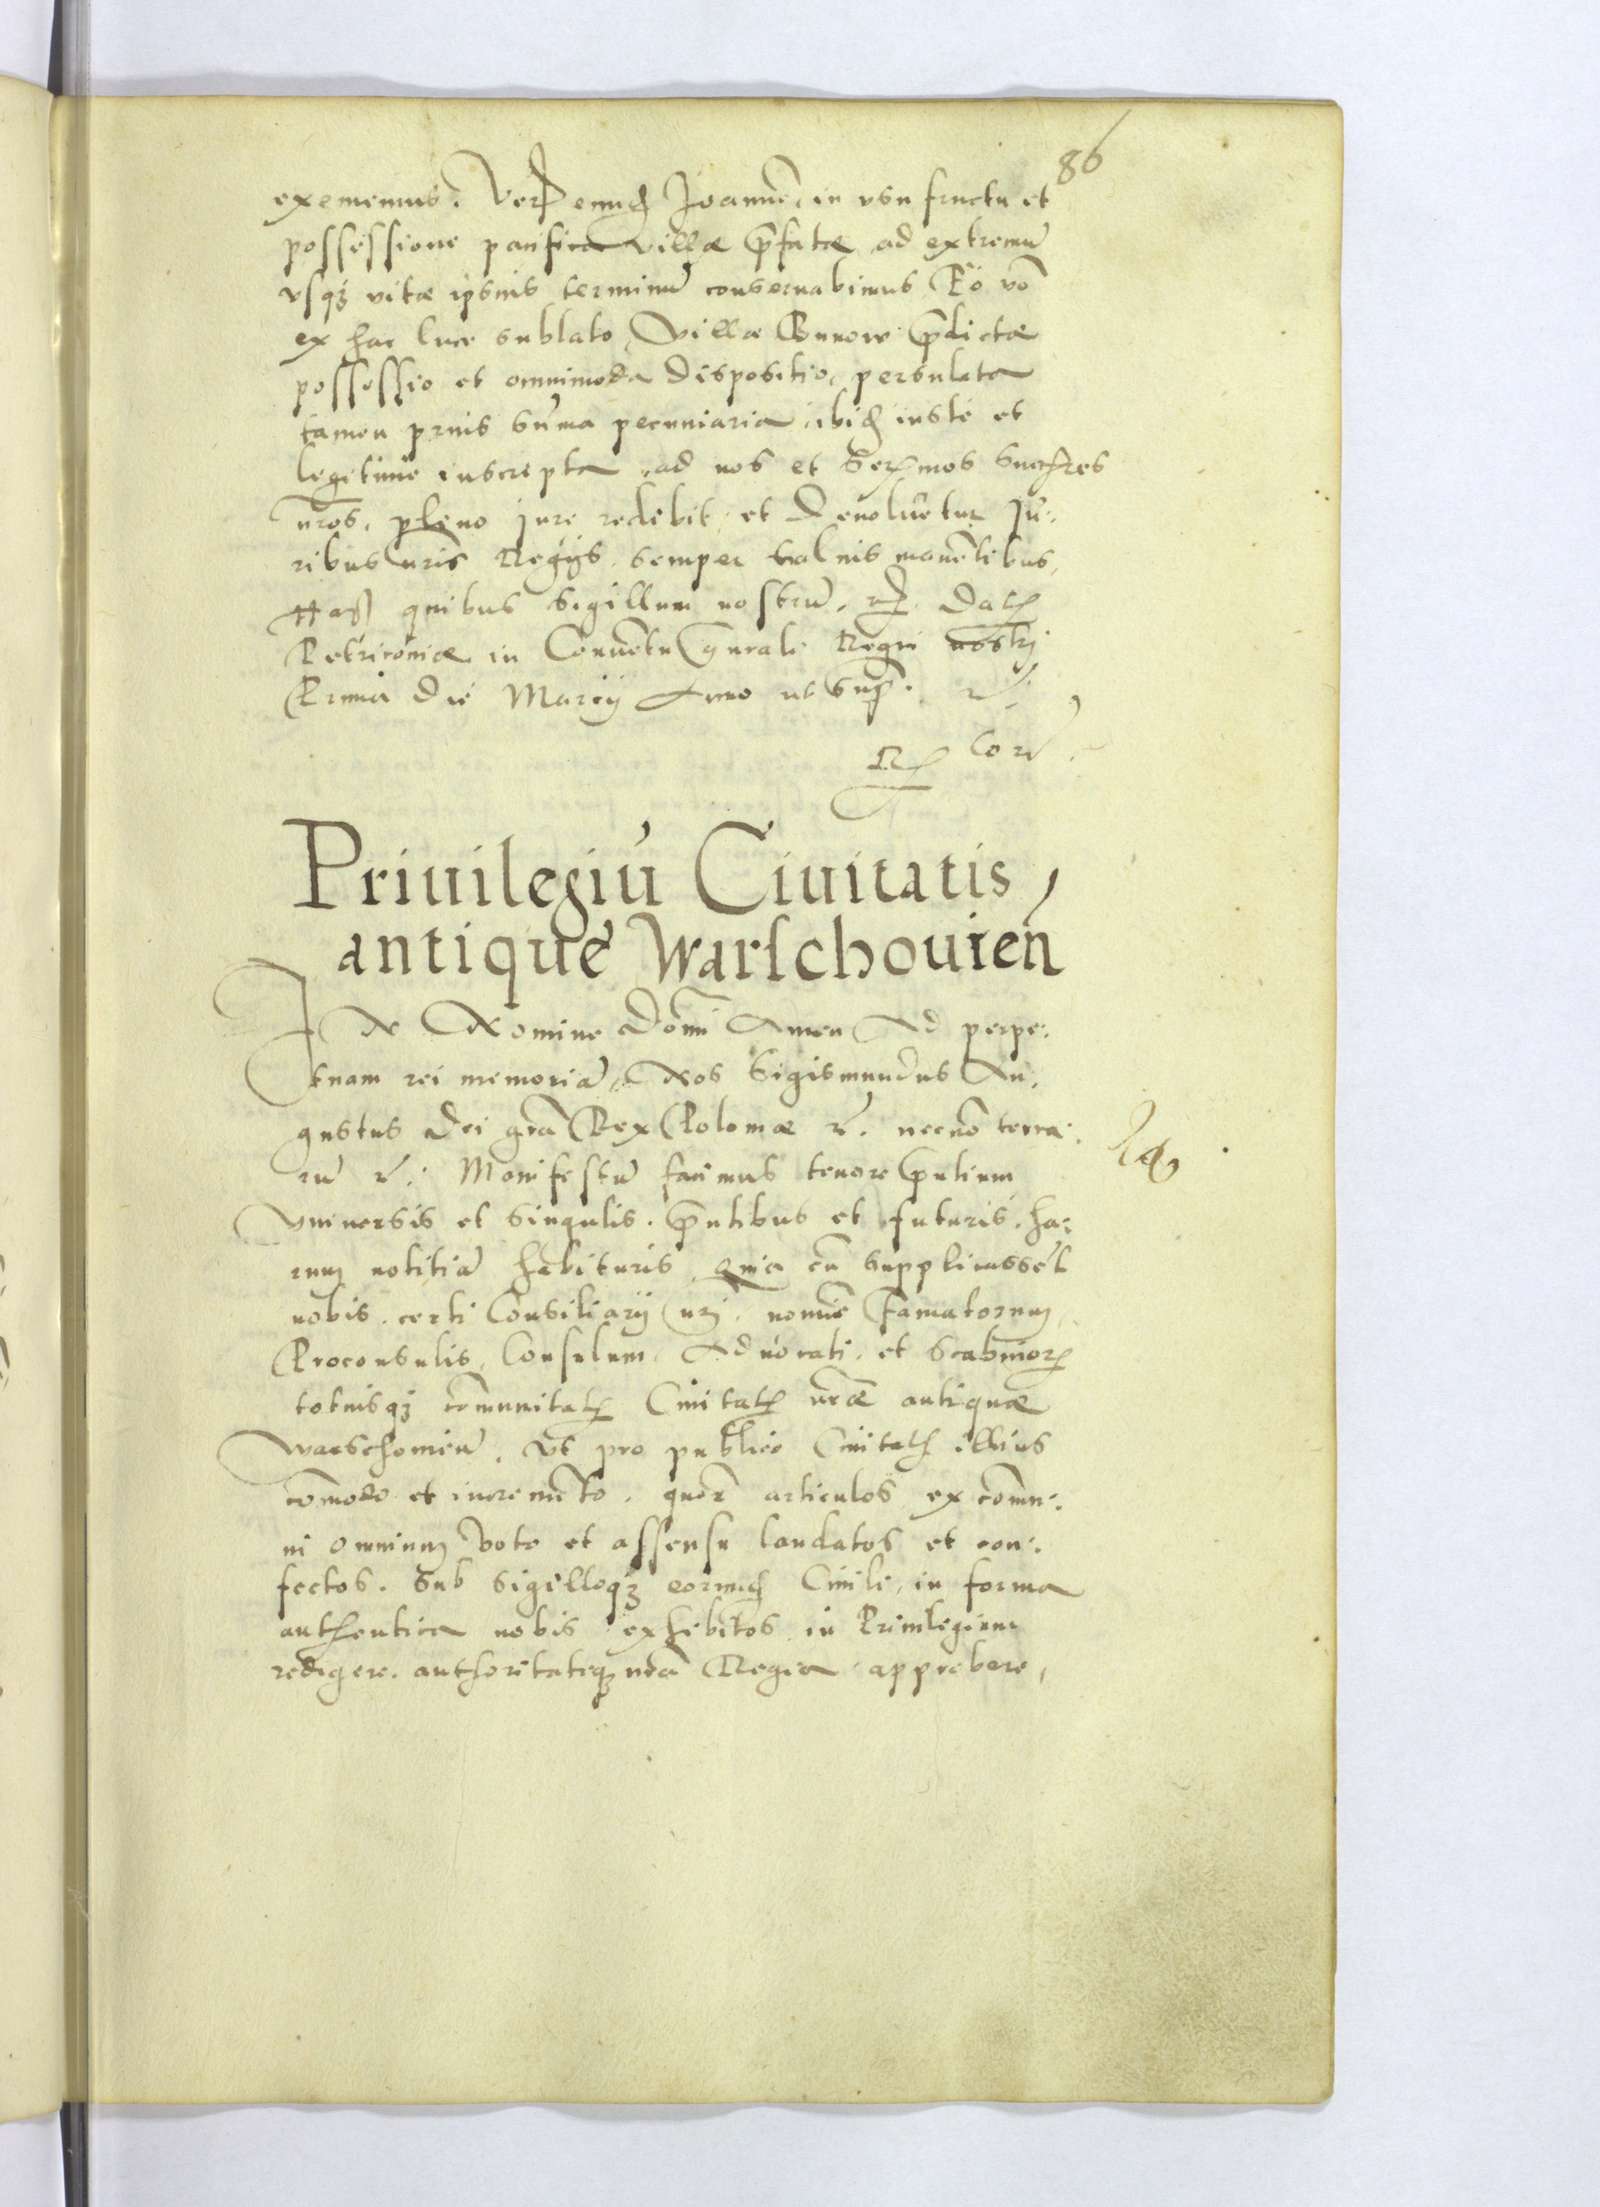 86
eximemus. Ver eund Joannē in usu fructu et
possessione pacifica villæ p̄fatæ ad extremū
usq3 vitæ ipsius terminū conservabimus Eo vō
ex hac luce sublato, Villæ Bunow p̄dictæ
possessio et omnimoda dispositio, persoluta
tamen prius sūma pecuniaria, ibid iuste et
legitime inscripta, ad nos et Serꝫmos Succres
nr̄os, pleno Jure redibit et devoluetur Ju:
ribus nr̄is Regijs semper salvis manētibus,
Har̄ quibus Sigillum nostrū. Datꝫ
Petricoviæ in Conuētu Gn̄rali Regni nostri
Prima Die Marcij Anno ut Sup̄.
Rꝫ Cor̄
Priuilegiū Ciuitatis
antique Warschouien̄
IN Nomine Domī Amen Ad perpe:
tuam rei memoriā. Nos Sigismundus Au:
gustus Dei gr̄a Rex Poloniæ ꝛc. necnō terra:
rū ꝛc: Manifestū facimus tenore p̄ntium
Vniuersis et singulis. p̄ntibus et futuris, ha:
rum notitiā habituris, Quia cū supplicassēt
nobis certi Consiliarij nr̄i, nomīe Famatorum,
Proconsulis, Consulum, Aduocati, et Scabinorꝫ
totiusq3 cōmunitatꝫ Ciuitatꝫ nr̄æ antiquæ
Warschouien̄. Vt pro publico Ciuitatꝫ illius
cōmodo et incremēto, quosd articulos ex cōmu:
ni omnium voto et assensu laudatos et con:
fectos. Sub sigilloq3 eorund Ciuili, in forma
authentica nobis exhibitos in Priuilegium
redigere. authoritateq3 nr̄a Regia approbare,